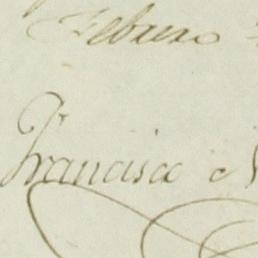 Febrero
Francisco